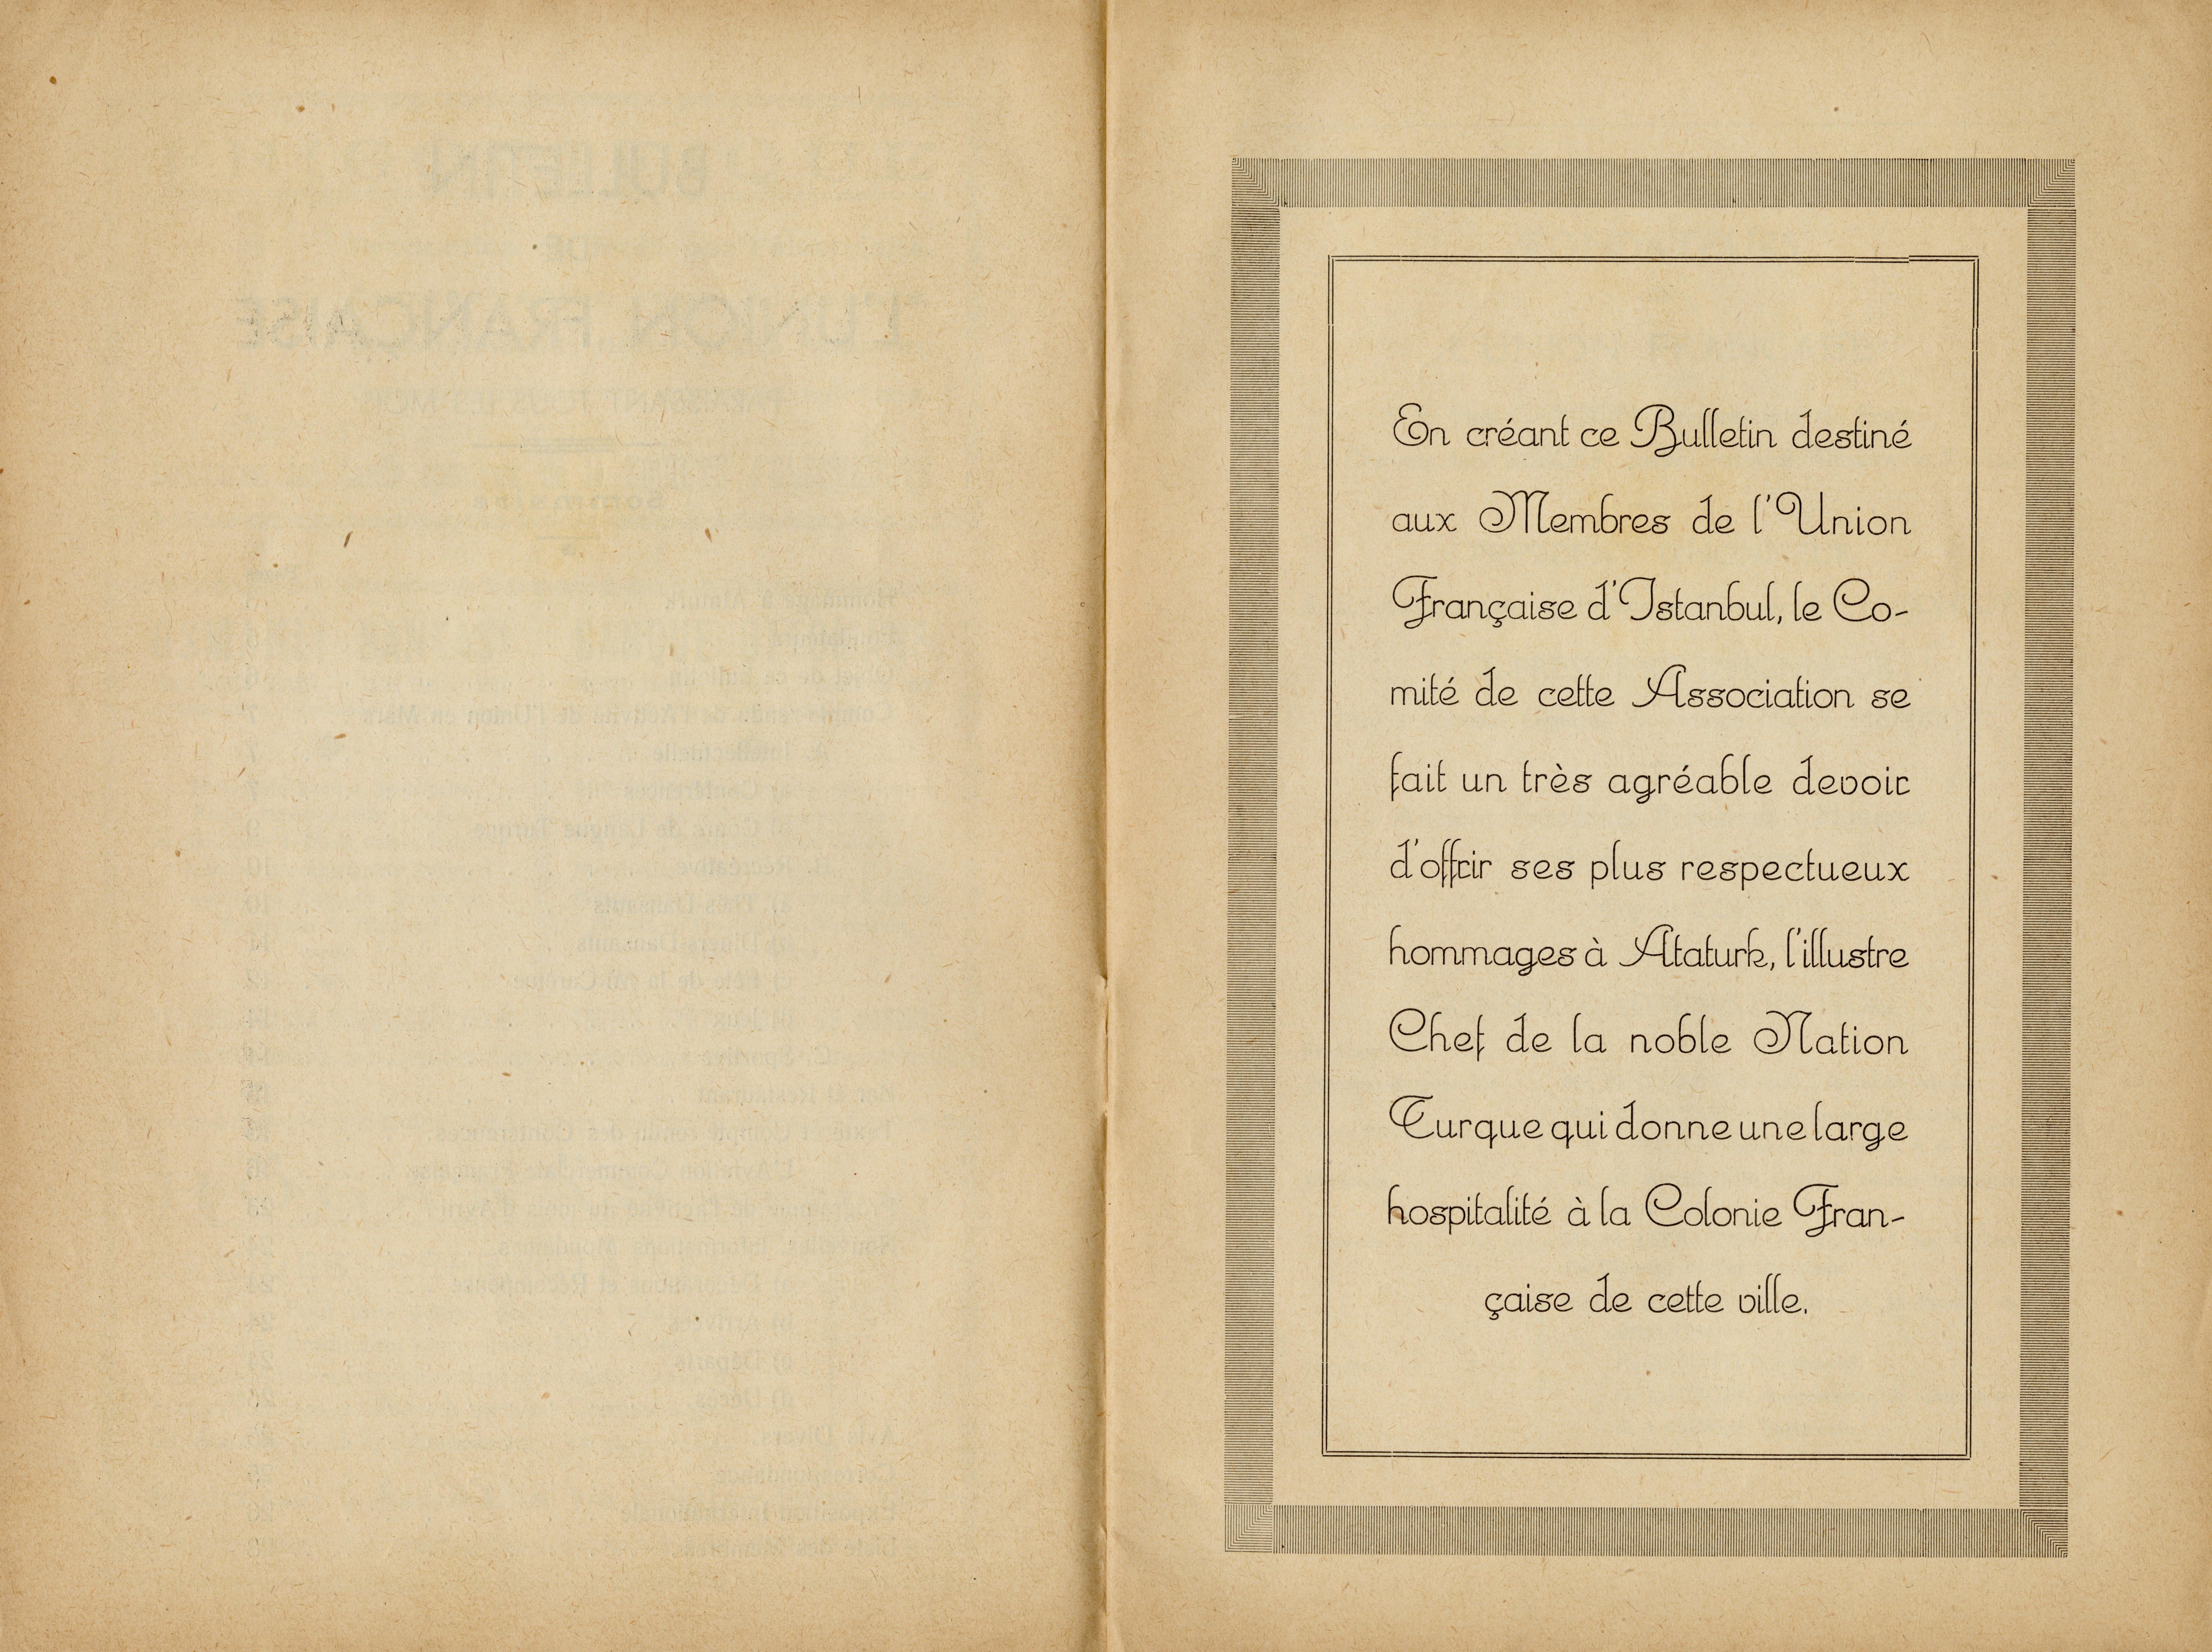 En créant ce Bulletin destiné
aux Membres de l'Union
Française d'Istanbul, le Co-
mité de cette Association se
fait un très agréable devoir
d'offrir ses plus respectueux
hommages à Ataturk, l'illustre
Chef de la noble Nation
Turque qui donne une large
hospitalité à la Colonie Fran-
çaise de cette ville.